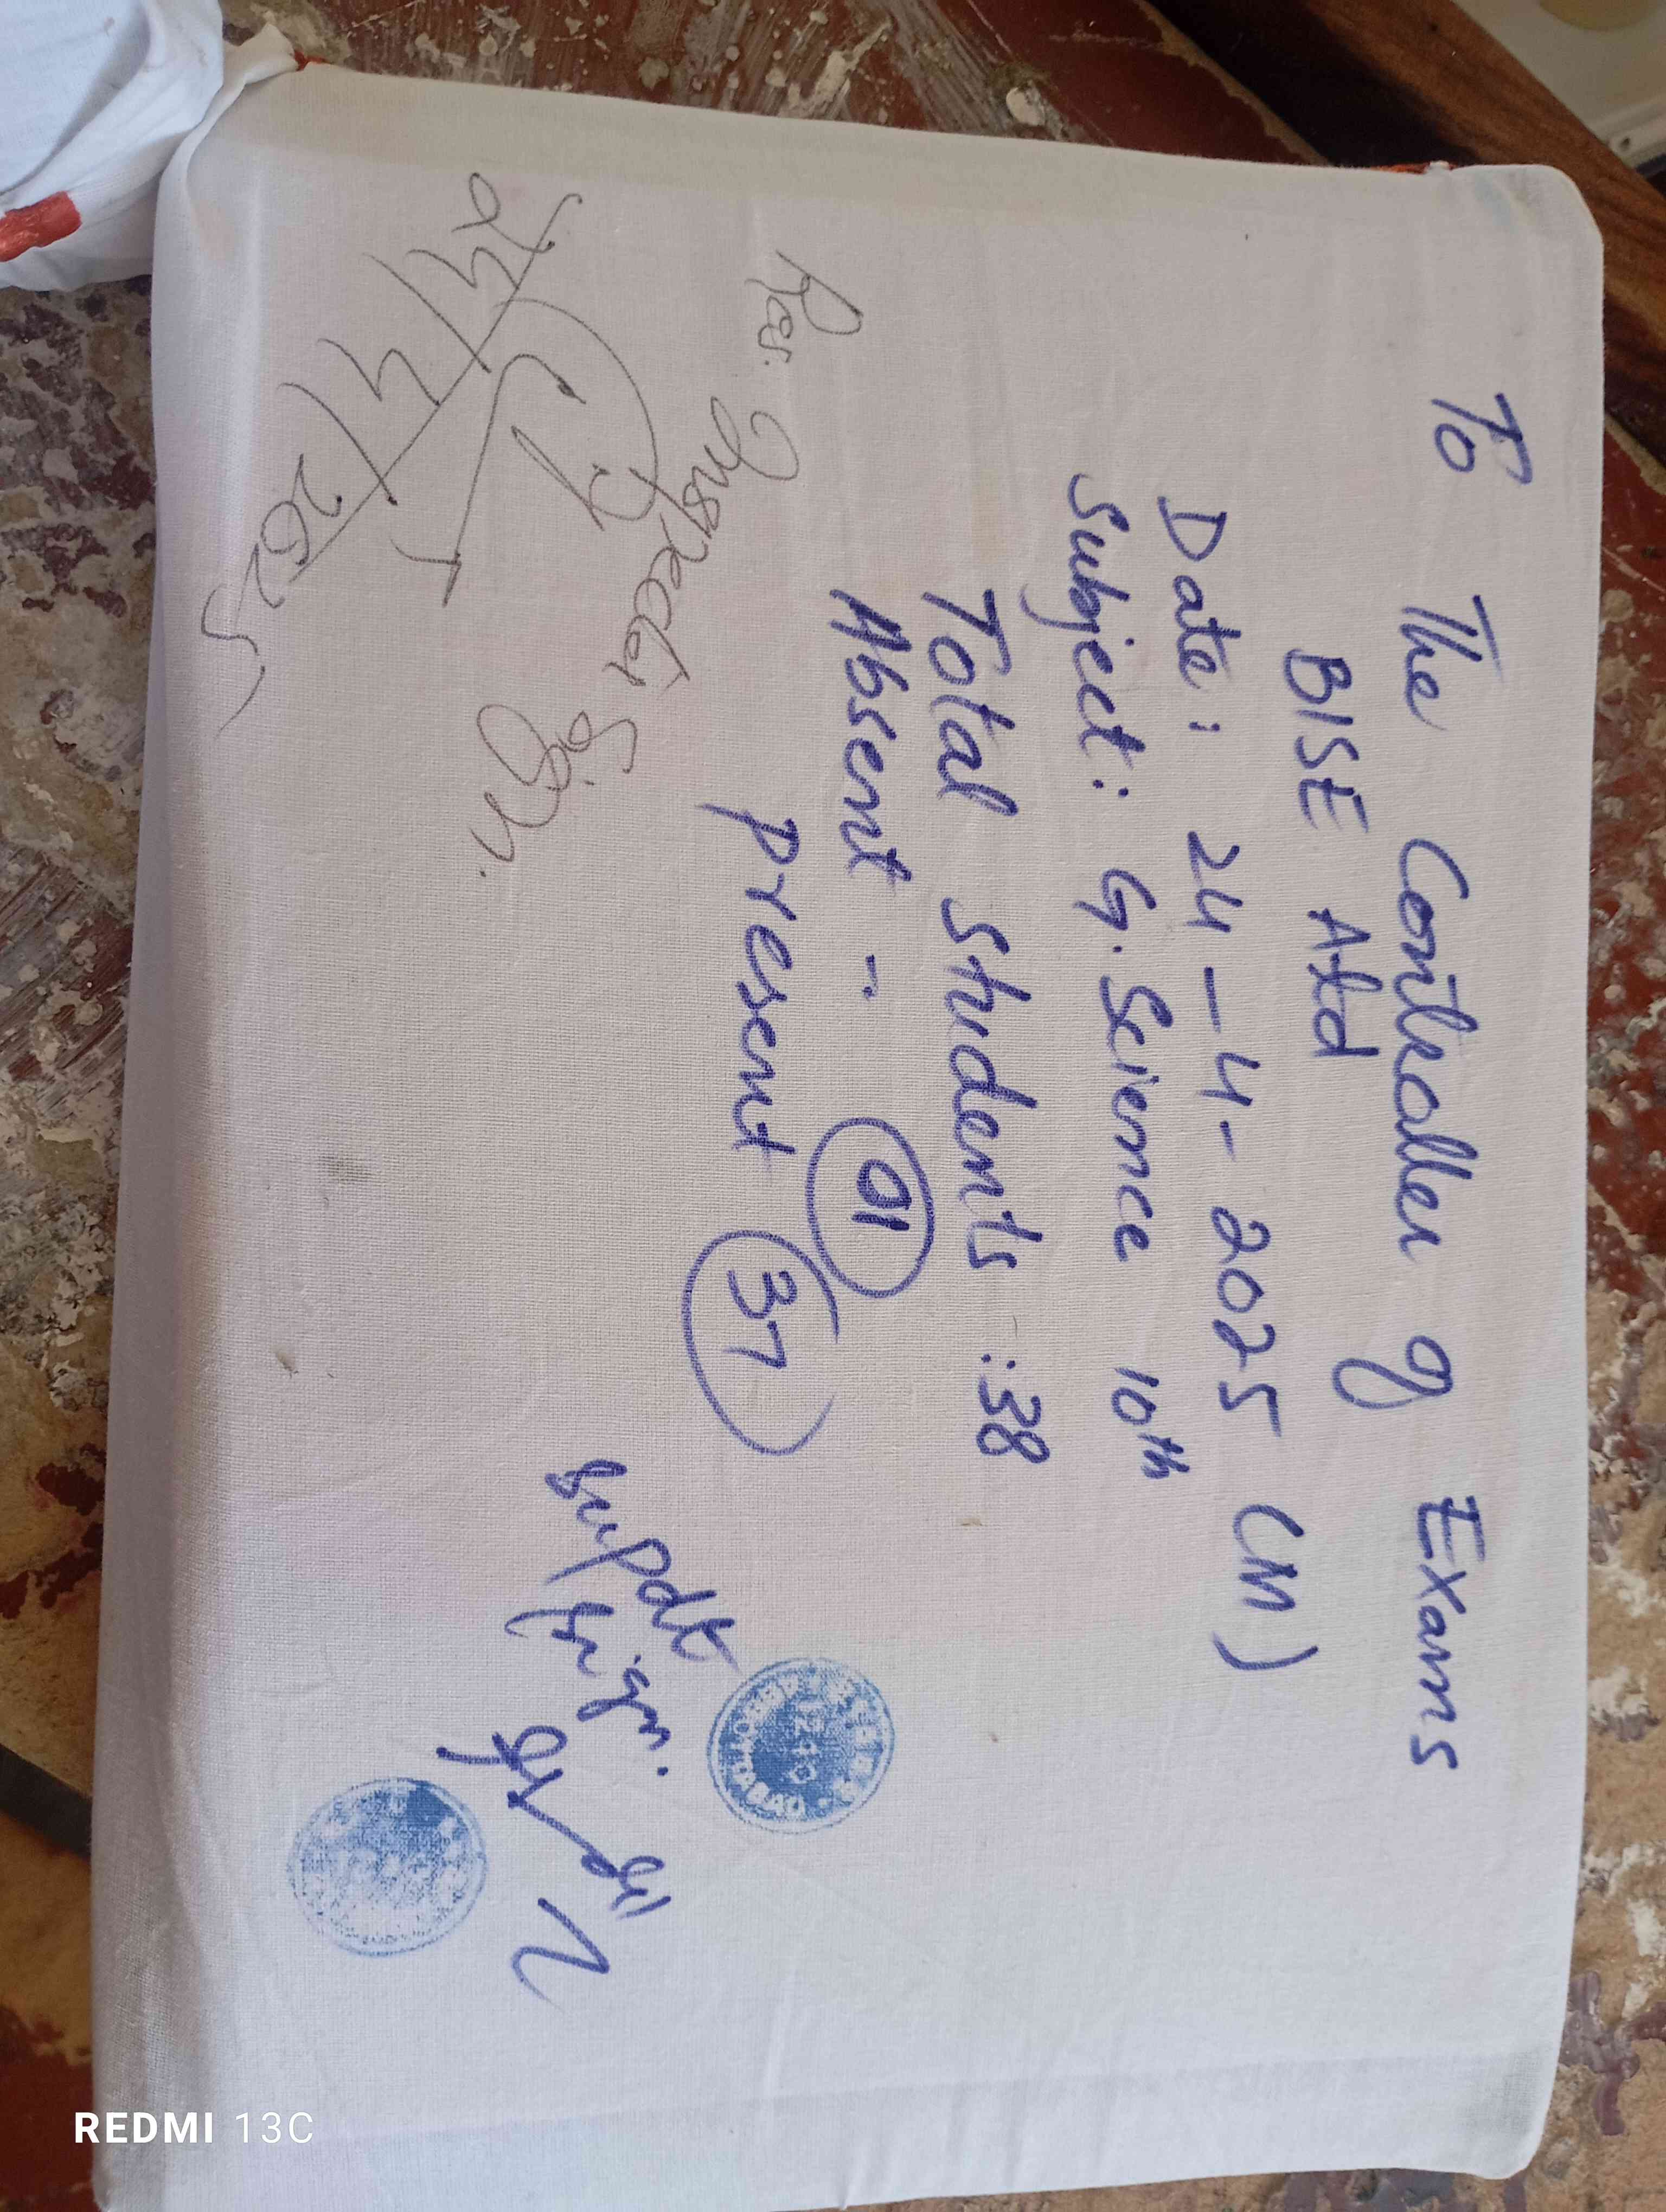 To The Controller of Exams
BISE Atd
Date: 24-4-2025 (M)
Subject: G.Science 10th
Total Students :38
Absent : 01
Present 37
Res. Inspector Sign.
24/4/2025
Supdt Sign.
REDMI 13C